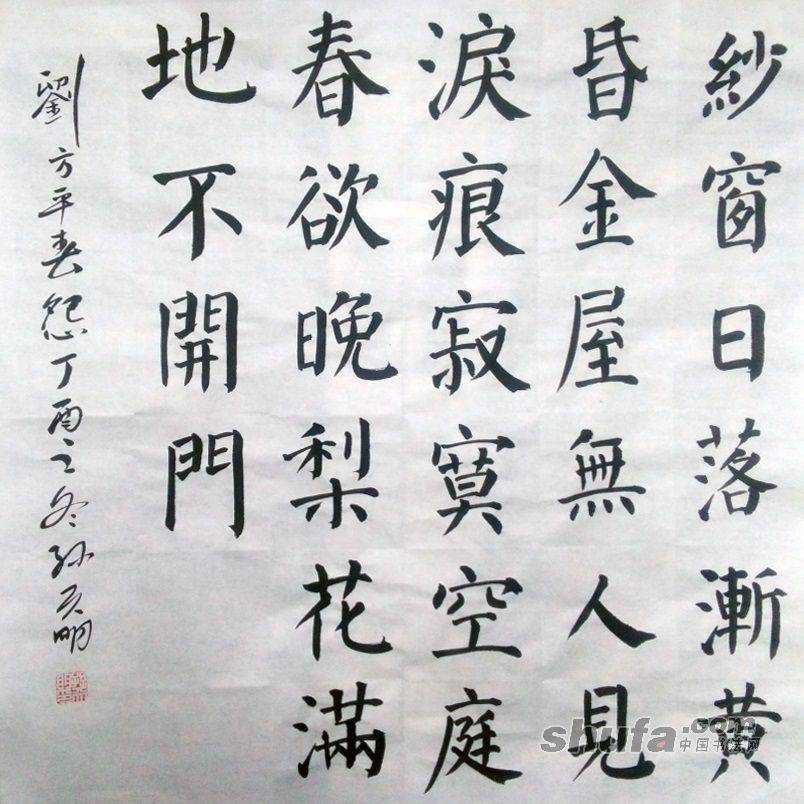 紗窗日落漸黄
昏金屋無人見
淚痕寂寞空庭
春欲晚梨花滿
地不開門
劉方平春怨丁酉之冬孙天明
shufa.com
中国书法网